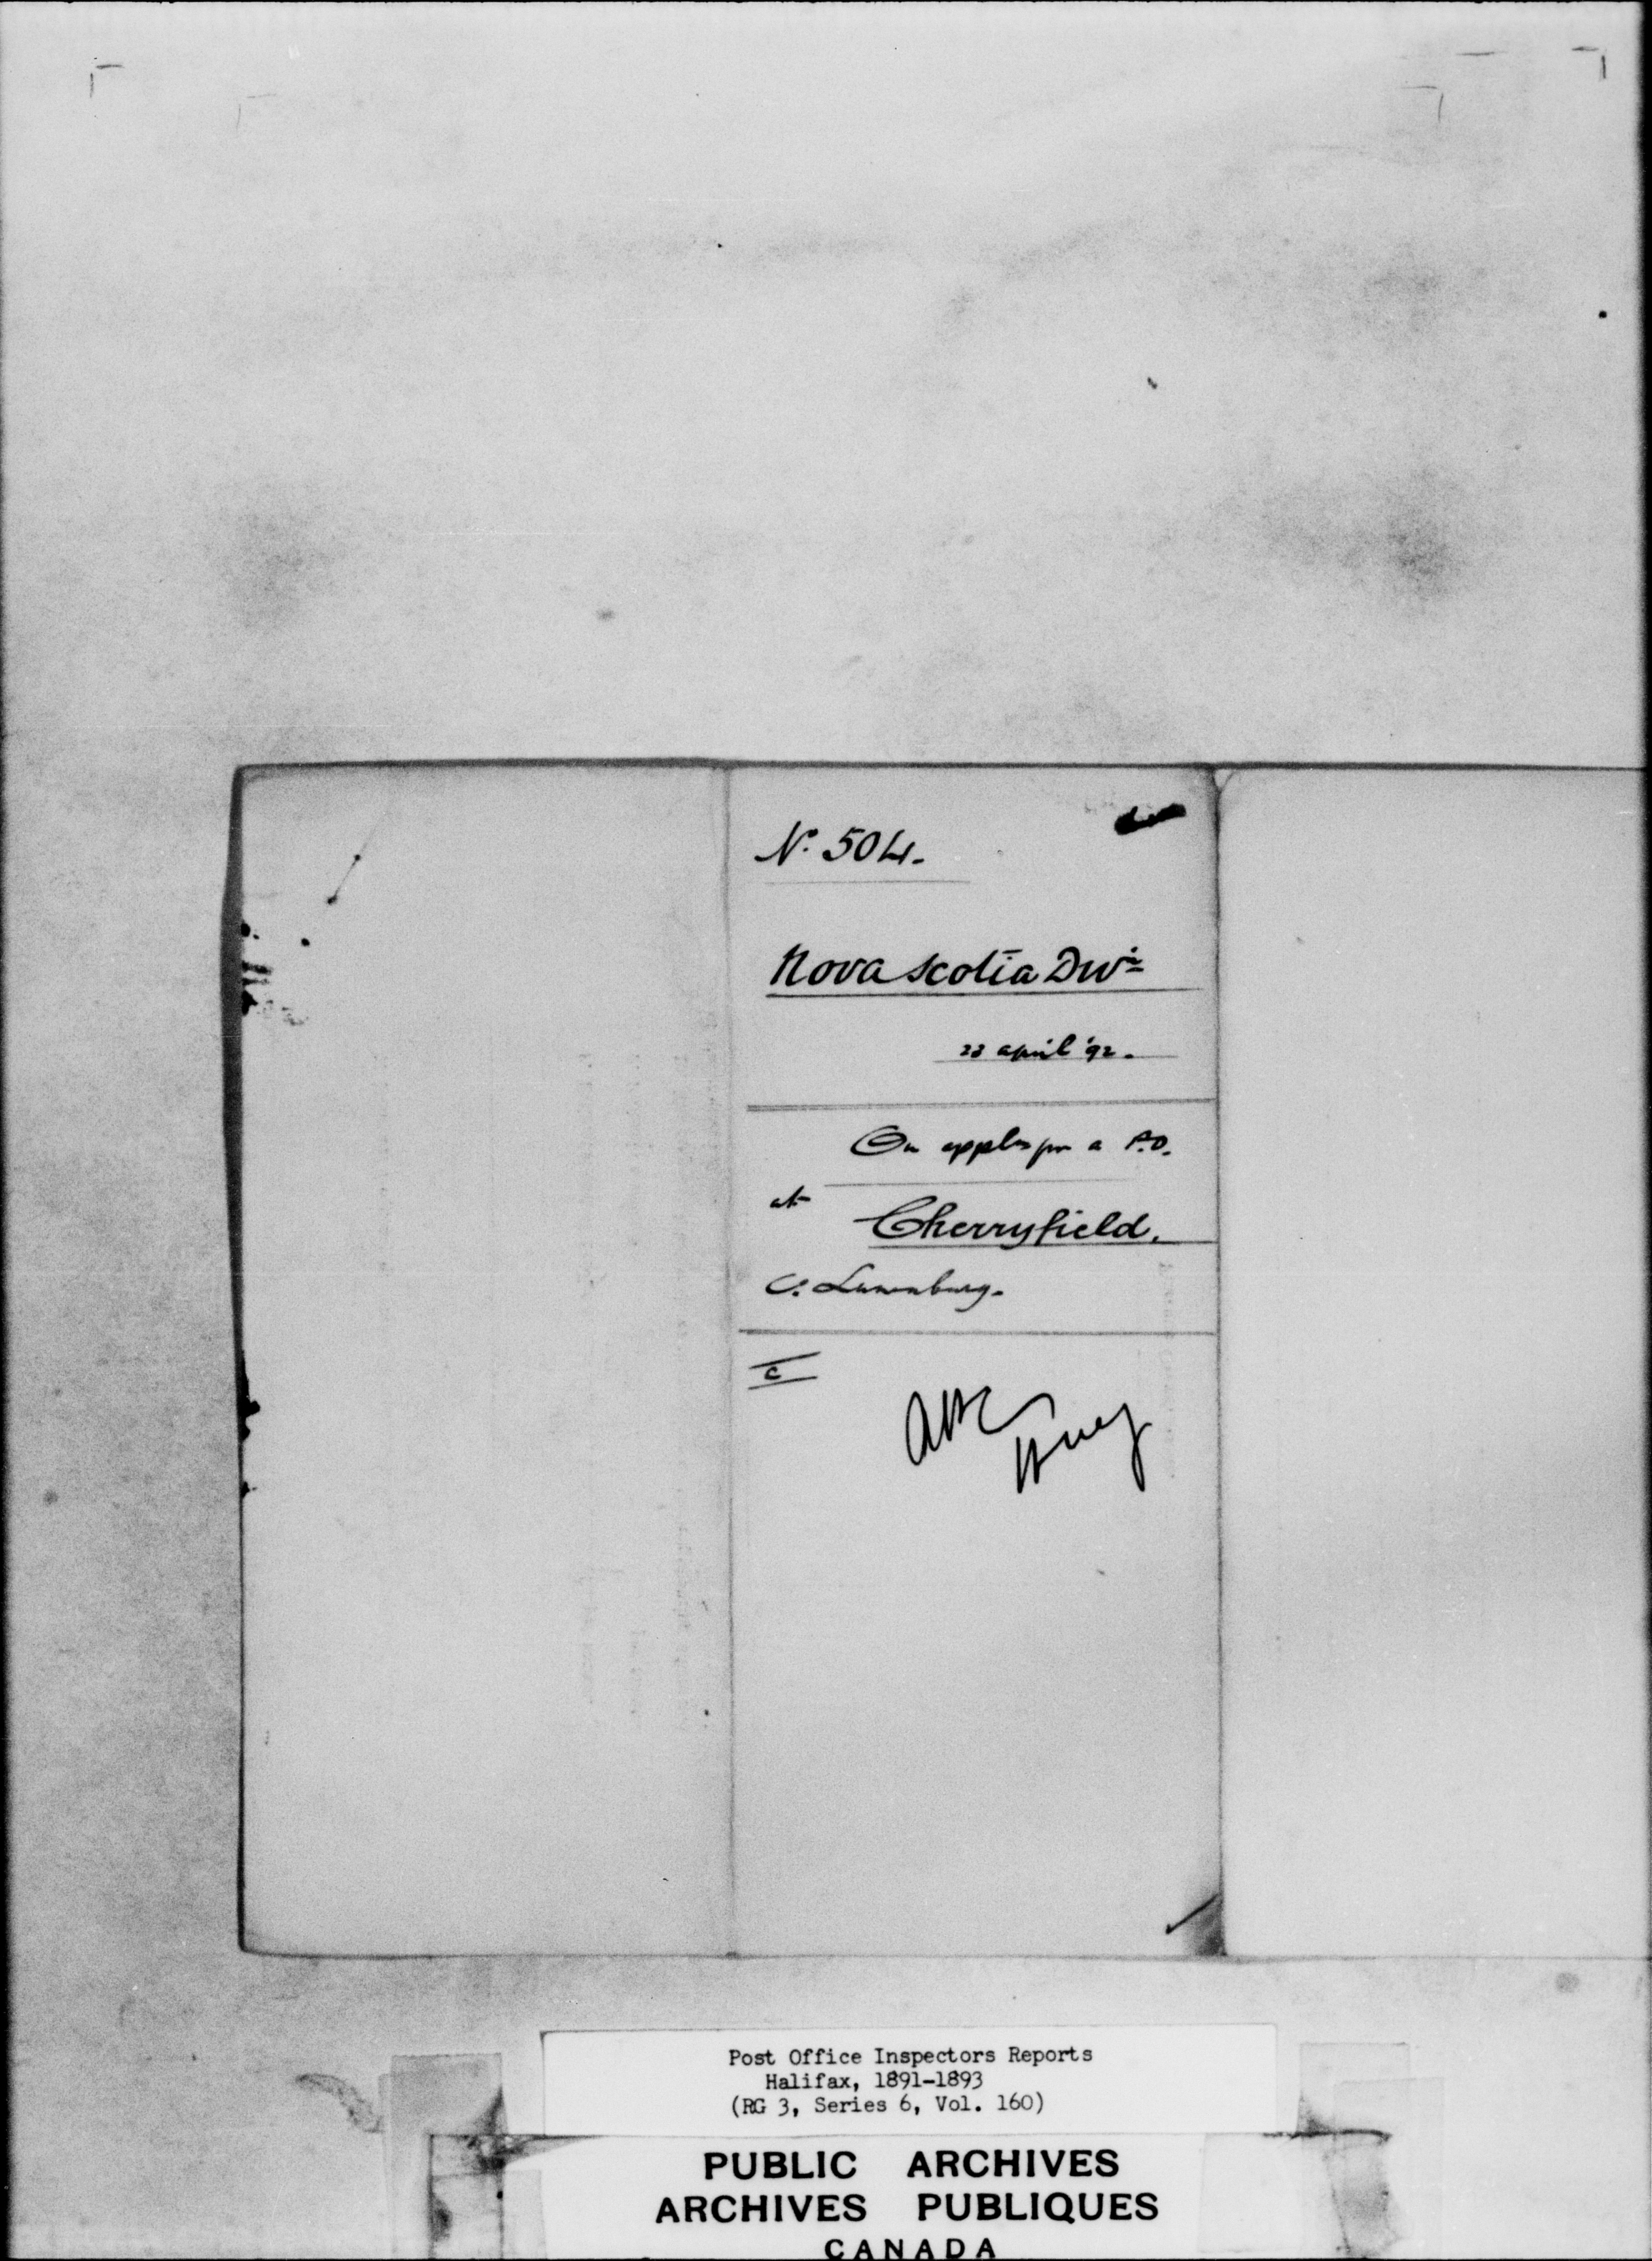 No. 504.
Nova Scotia Divn
23 April '92.
On appln for a P.O.
at
Cherryfield.
C. Lunenburg.
C
Post Office Inspectors Reports
Halifax, 1891-1893
(RG 3, Series 6, Vol. 160)
PUBLIC ARCHIVES
ARCHIVES PUBLIQUES
CANADA